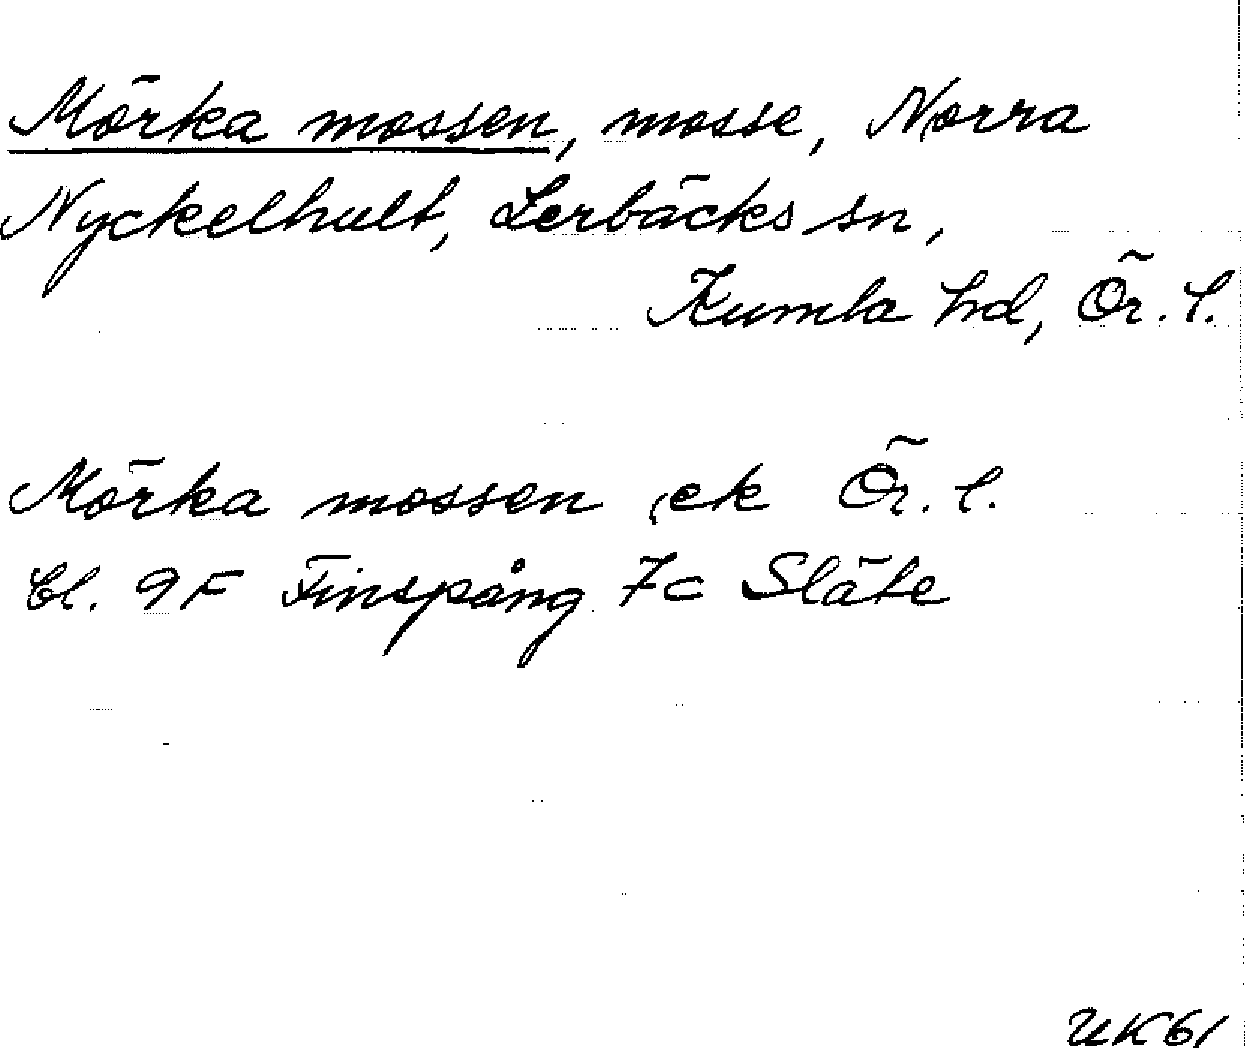 Mörka mossen, mosse, Norra
Nyckelhult, Lerbäcks sn,
Kumla hd, Ör. l.
Mörka mossen, ek Ör. l.
bl. 9F Finspång 7c Släte
UK61